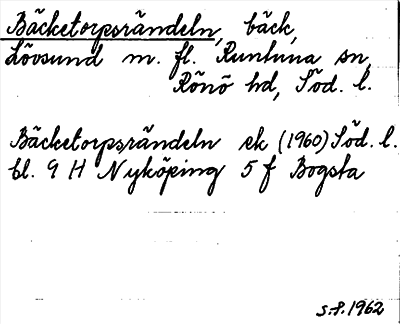 Bäcketorpsrändeln, bäck,
Lövsund m. fl. Runtuna sn,
Rönö hd, Söd. l.
Bäcketorpsrändeln ek (1960) Söd. l.
bl. 9 H Nyköping 5 f Bogsta
S.F. 1962